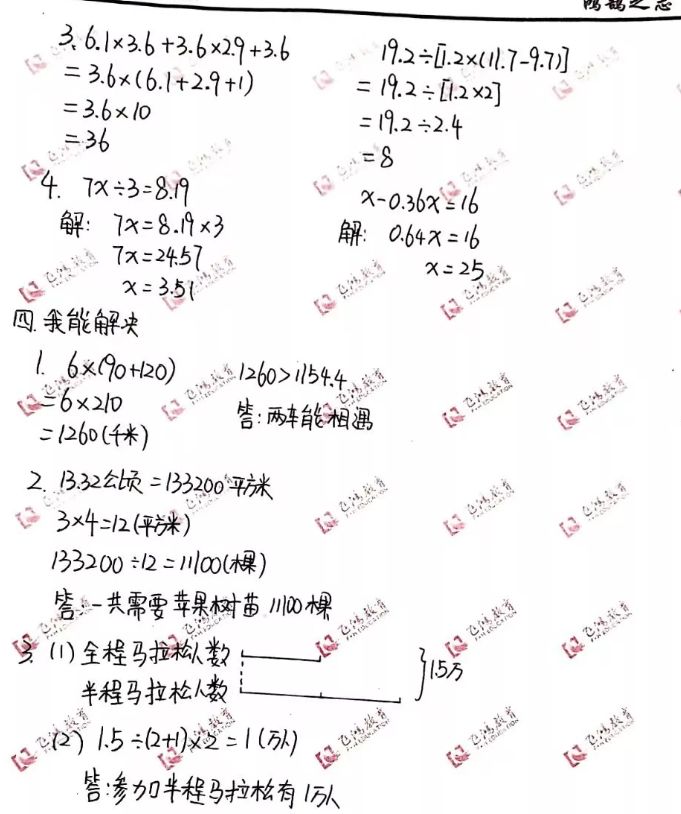 鸿鹄之志
3、6.1×3.6+3.6×2.9+3.6
=3.6×(6.1+2.9+1)
=3.6×10
=36
19.2÷[1.2×(11.7-9.7)]
=19.2÷[1.2×2]
=19.2÷2.4
=8
4. 7x÷3=8.19
解: 7x=8.19×3
7x=24.57
x=3.51
x-0.36x=16
解: 0.64x=16
x=25
四.我能解决
1. 6×(90+120)
=6×210
=1260(千米)
1260>1154.4
答:两车能相遇
2. 13.32公顷=133200平方米
3×4=12(平方米)
133200÷12=11100(棵)
答:一共需要苹果树苗11100棵
3. (1)全程马拉松人数
半程马拉松人数
1.5万
(2) 1.5÷(2+1)×2=1(万人)
答:参加半程马拉松有1万人
飞鸿教育